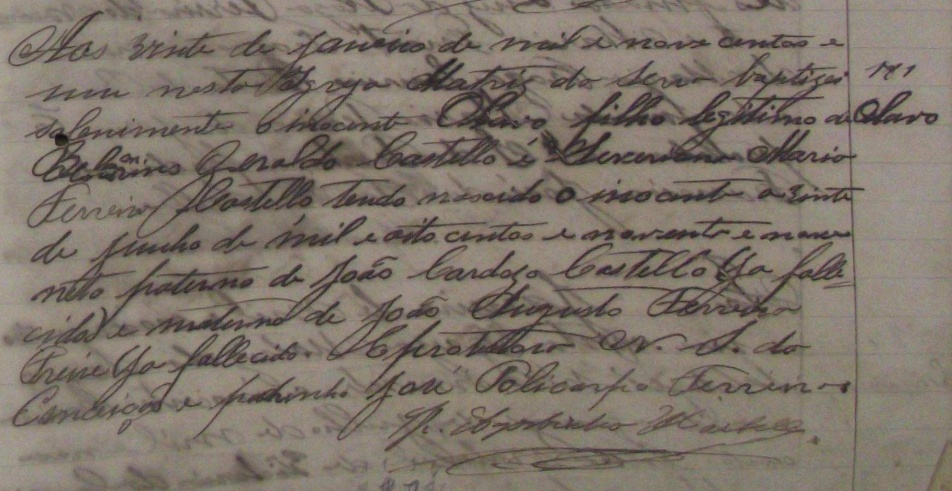 Aos vinte de janeiro de mil e nove centos e
um nesta Igreja Matriz da Serra baptizei
solenimente o inocente Olavo filho legitimo de
Olavo
Geraldo Castello e Maria
Ferreira Castello tendo nascido o inocente a vinte
de junho de mil e oito centos e noventa e nove
neto paterno de João Cardozo Castello (ja falle
cido) e materno de João Augusto Ferreira
Freire (ja fallecido. E protetora N. S. da
Conceição e padrinho José Policarpo Ferreira.
P.